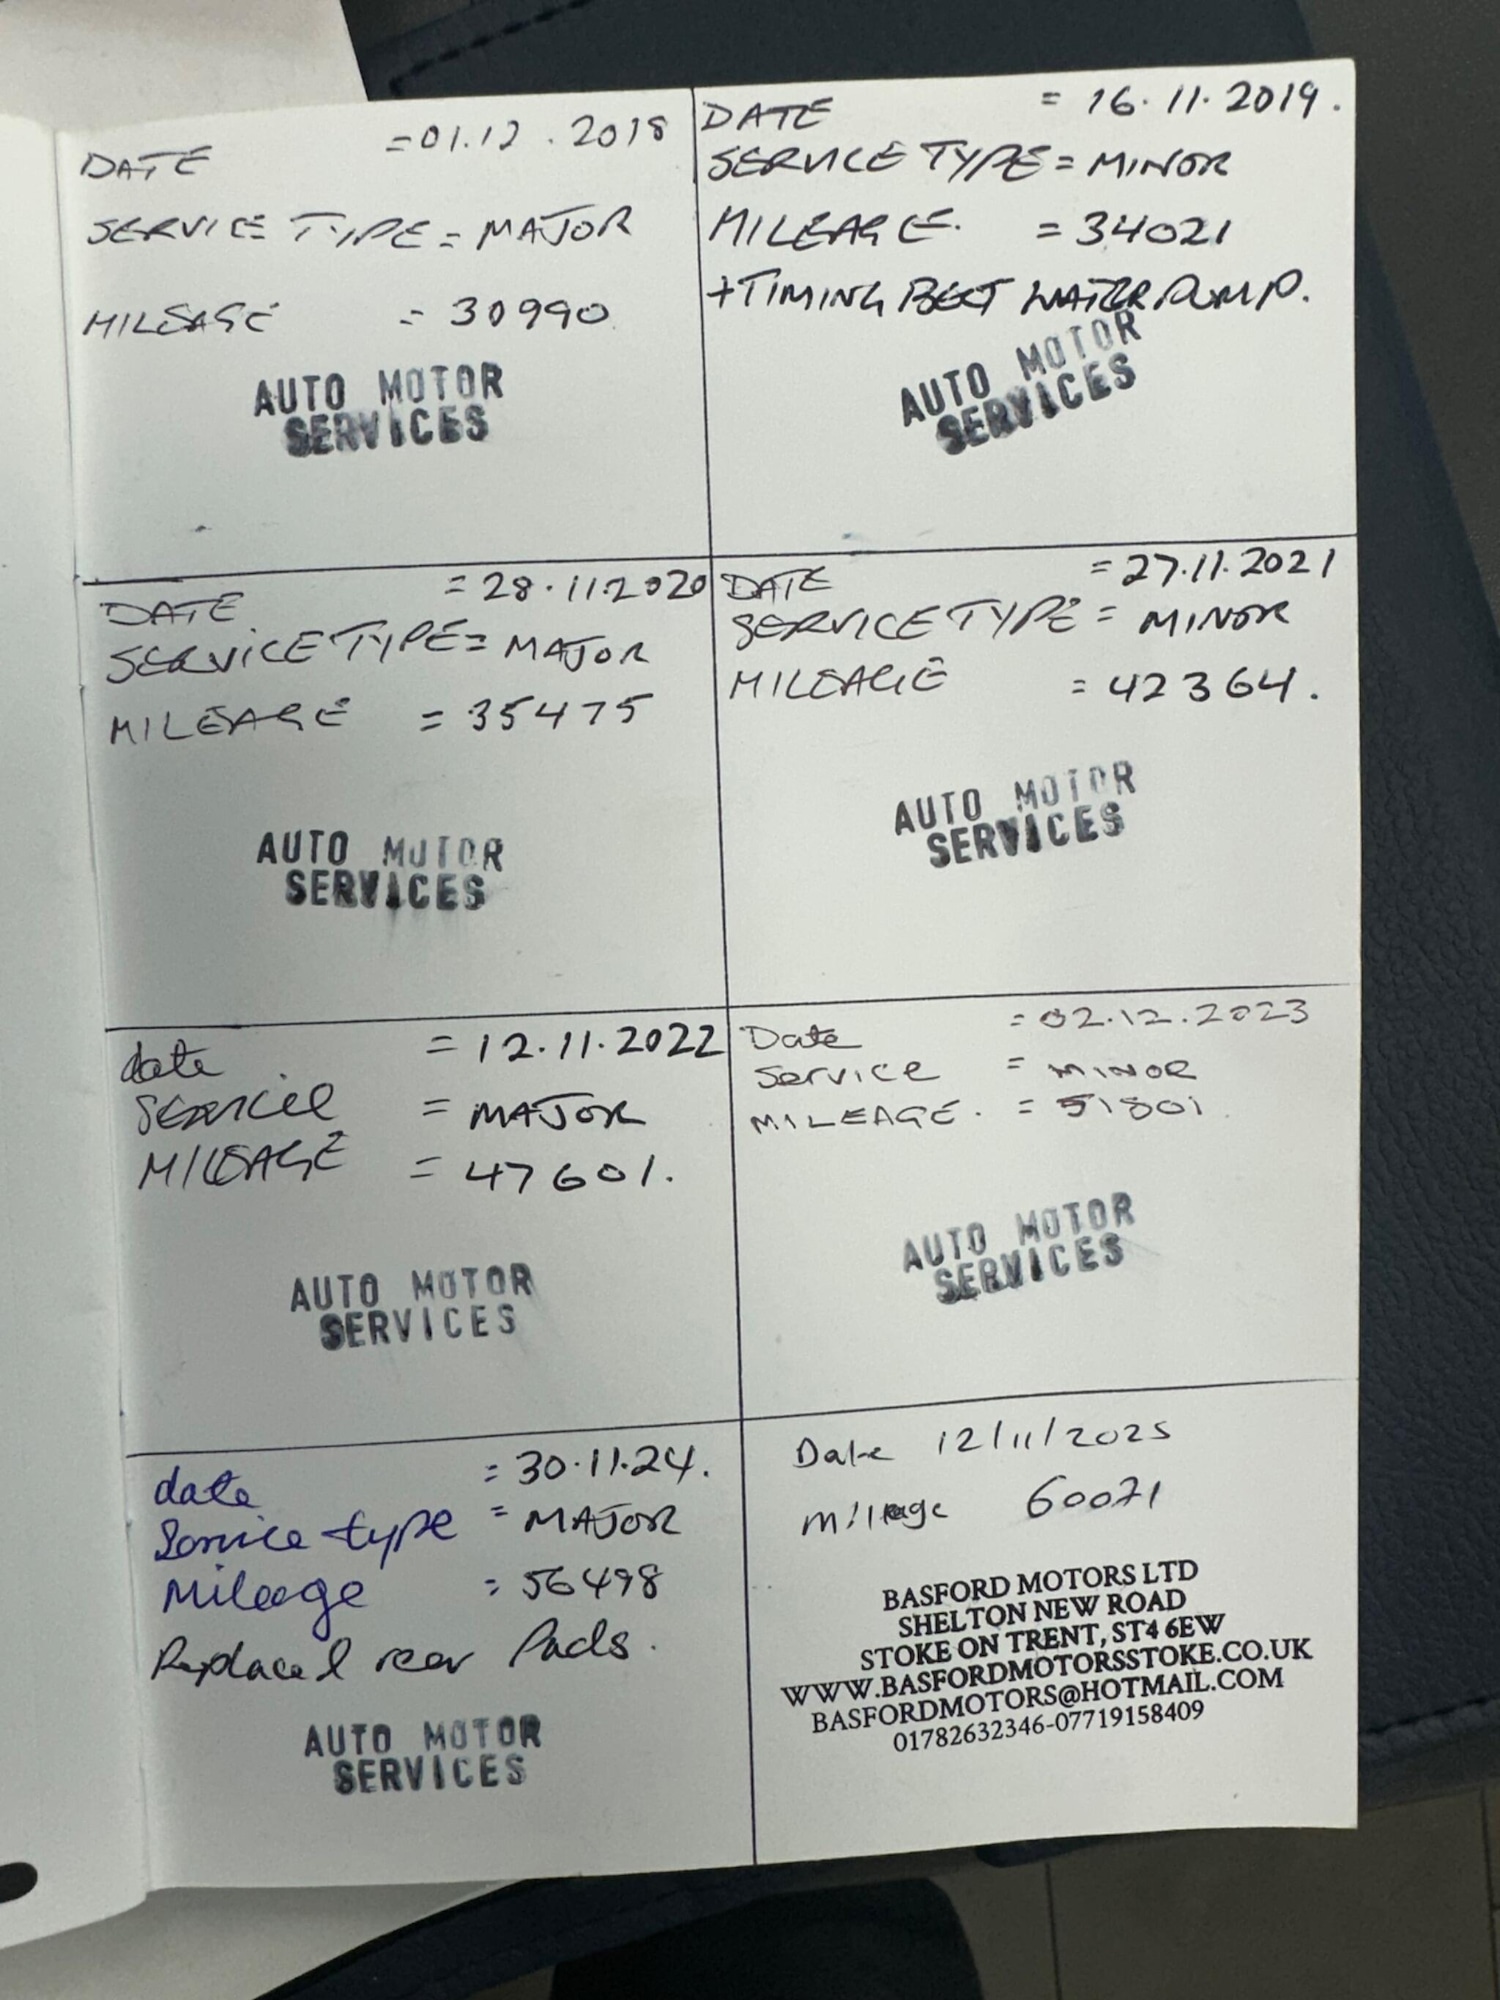 DATE =01.12.2018
SERVICE TYPE = MAJOR
MILEAGE = 30990
AUTO MOTOR
SERVICES
DATE = 16.11.2019.
SERVICE TYPE = MINOR
MILEAGE. = 34021
+TIMING BELT WATER PUMP.
AUTO MOTOR
SERVICES
DATE = 28.11.2020
SERVICE TYPE = MAJOR
MILEAGE = 35475
AUTO MOTOR
SERVICES
DATE = 27.11.2021
SERVICE TYPE = MINOR
MILEAGE = 42364.
AUTO MOTOR
SERVICES
date = 12.11.2022
Service = MAJOR
MILEAGE = 47601.
AUTO MOTOR
SERVICES
Date = 02.12.2023
Service = MINOR
MILEAGE. = 51801
AUTO MOTOR
SERVICES
date = 30.11.24.
Service type = MAJOR
Mileage = 56498
Replaced rear Pads.
AUTO MOTOR
SERVICES
Date 12/11/2025
Mileage 60071
BASFORD MOTORS LTD
SHELTON NEW ROAD
STOKE ON TRENT, ST4 6EW
WWW.BASFORDMOTORSSTOKE.CO.UK
BASFORDMOTORS@HOTMAIL.COM
01782632346-07719158409